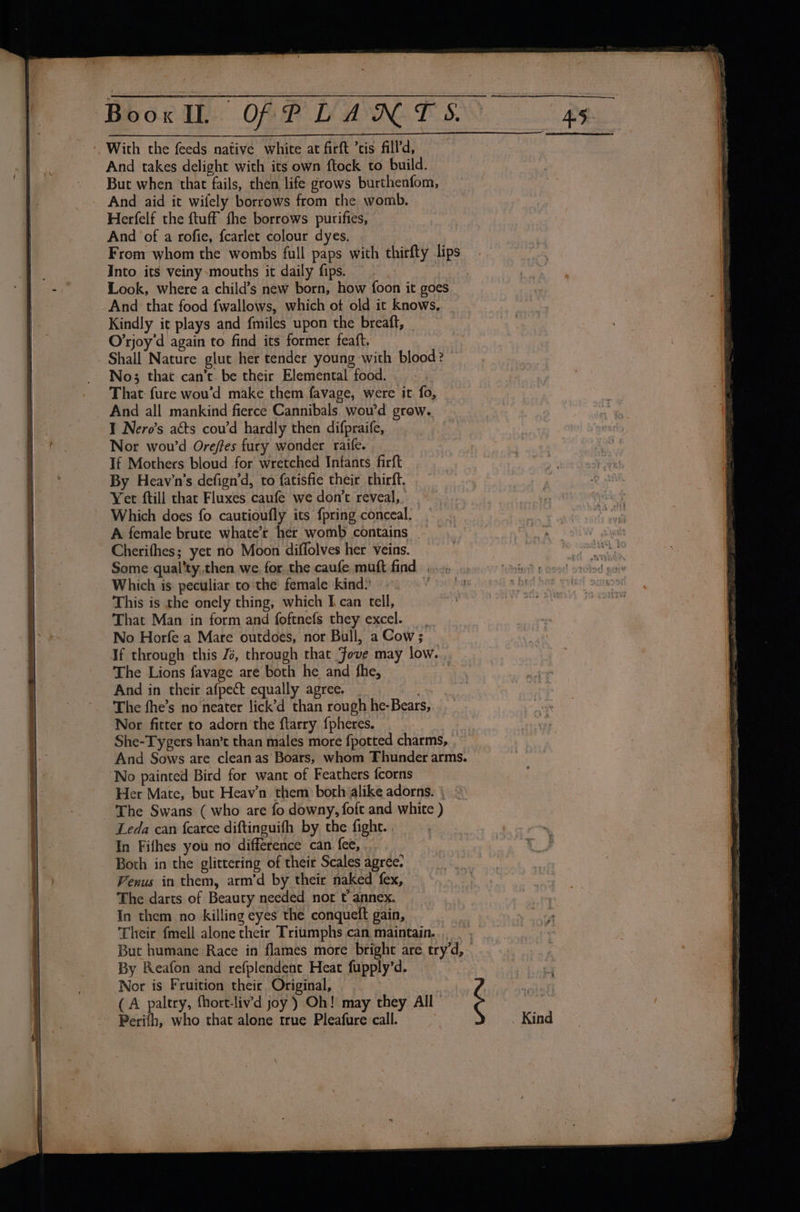 Book II. Of PLANTS. 45
With the ſeeds native white at firſt 'tis fill'd,
And takes delight with its own ſtock to build.
But when that fails, then life grows burthenſom,
And aid it wiſely borrows from the womb.
Herſelf the ſtuff ſhe borrows purifies,
And of a roſie, ſcarlet colour dyes.
From whom the wombs full paps with thirſty lips
Into its veiny mouths it daily ſips.
Look, where a child's new born, how ſoon it goes
And that food ſwallows, which of old it knows,
Kindly it plays and ſmiles upon the breaſt,
O'rjoy'd again to find its former feaſt.
Shall Nature glut her tender young with blood?
No; that can't be their Elemental food.
That ſure wou'd make them ſavage, were it ſo,
And all mankind fierce Cannibals wou'd grow.
I Nero's acts cou'd hardly then diſpraiſe,
Nor wou'd Oreſtes fury wonder raiſe.
If Mothers bloud for wretched Infants firſt
By Heav'n's deſign'd, to ſatisfie their thirſt.
Yet ſtill that Fluxes cauſe we don't reveal,
Which does ſo cautiouſly its ſpring conceal.
A female brute whate'r her womb contains
Cheriſhes; yet no Moon diſſolves her veins.
Some qual'ty then we for the cauſe muſt find
Which is peculiar to the female kind.
This is the onely thing, which I can tell,
That Man in form and ſoftneſs they excel.
No Horſe a Mare outdoes, nor Bull, a Cow;
If through this Iö, through that Jove may low.
The Lions ſavage are both he and ſhe,
And in their aſpect equally agree.
The ſhe's no neater lick'd than rough he-Bears,
Nor fitter to adorn the ſtarry ſpheres.
She-Tygers han't than males more ſpotted charms,
And Sows are clean as Boars, whom Thunder arms.
No painted Bird for want of Feathers ſcorns
Her Mate, but Heav'n them both alike adorns.
The Swans (who are ſo downy, ſoft and white)
Leda can ſcarce diſtinguiſh by the ſight.
In Fiſhes you no difference can ſee,
Both in the glittering of their Scales agree.
Venus in them, arm'd by their naked ſex,
The darts of Beauty needed not t'annex.
In them no killing eyes the conqueſt gain,
Their ſmell alone their Triumphs can maintain.
But humane Race in flames more bright are try'd,
By Reaſon and reſplendent Heat ſupply'd.
Nor is Fruition their Original,
(A paltry, ſhort-liv'd joy) Oh! may they All
Periſh, who that alone true Pleaſure call.
Kind